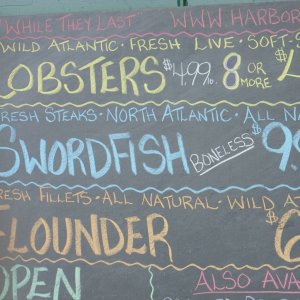 "WHILE THEY LAST" WWW HARBOR
WILD ATLANTIC · FRESH LIVE · SOFT-S
LOBSTERS $4.99 lb. 8 OR MORE $
FRESH STEAKS · NORTH ATLANTIC · ALL NA
SWORDFISH BONELESS $9
FRESH FILLETS · ALL NATURAL · WILD AT
FLOUNDER $6
OPEN ALSO AVA